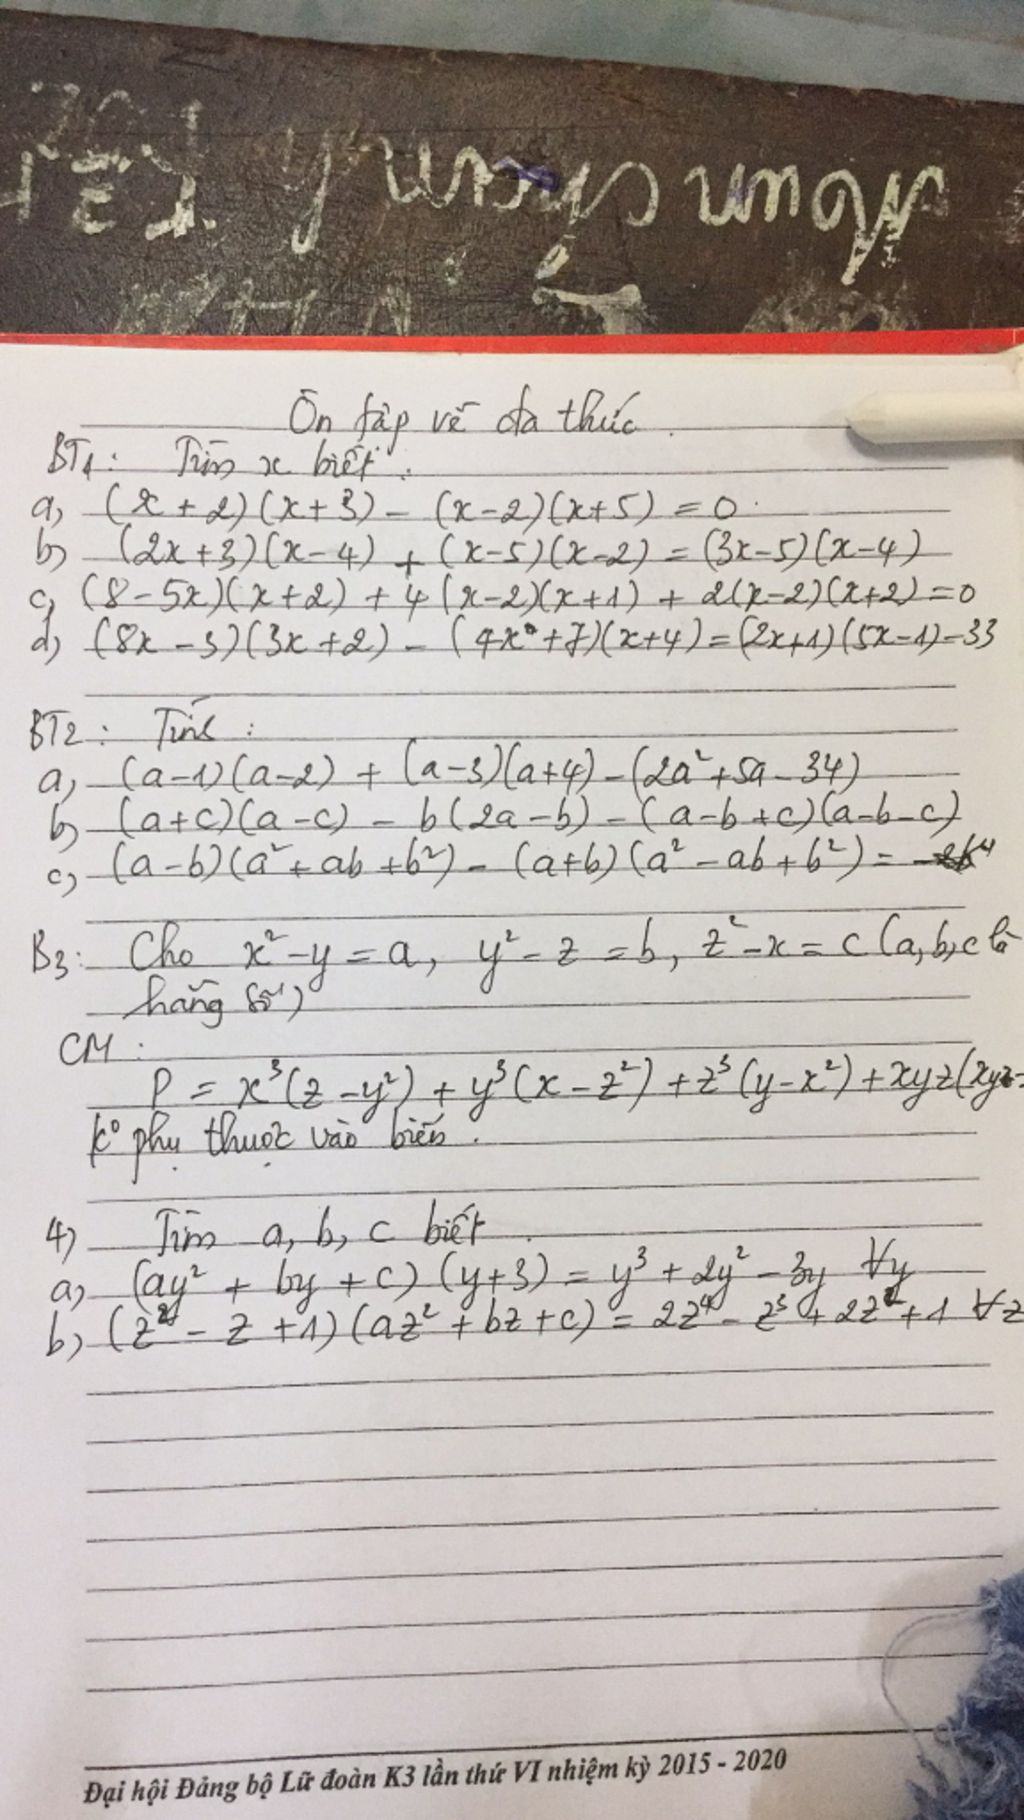 Ôn tập về đa thức.
BT1: Tìm x biết.
a, (x+2)(x+3) - (x-2)(x+5) = 0
b) (2x+3)(x-4) + (x-5)(x-2) = (3x-5)(x-4)
c, (8-5x)(x+2) + 4(x-2)(x+1) + 2(x-2)(x+2) = 0
d) (8x-3)(3x+2) - (4x+7)(x+4) = (2x+1)(5x-1)-33
BT2: Tính:
a, (a-1)(a-2) + (a-3)(a+4) - (2a²+5a-34)
b, (a+c)(a-c) - b(2a-b) - (a-b+c)(a-b-c)
c, (a-b)(a²+ab+b²) - (a+b)(a²-ab+b²) =
B3: Cho x²-y = a, y²-z = b, z²-x = c (a,b,c là
hằng số)
CM:
P = x³(z-y²) + y³(x-z²) + z³(y-x²) + xyz(xyz-
k° phụ thuộc vào biến.
4) Tìm a, b, c biết
a, (ay²+by+c)(y+3) = y³+2y²-3y ∀y
b, (z²-z+1)(az²+bz+c) = 2z⁴-z³+2z²+1 ∀z
Đại hội Đảng bộ Lữ đoàn K3 lần thứ VI nhiệm kỳ 2015 - 2020